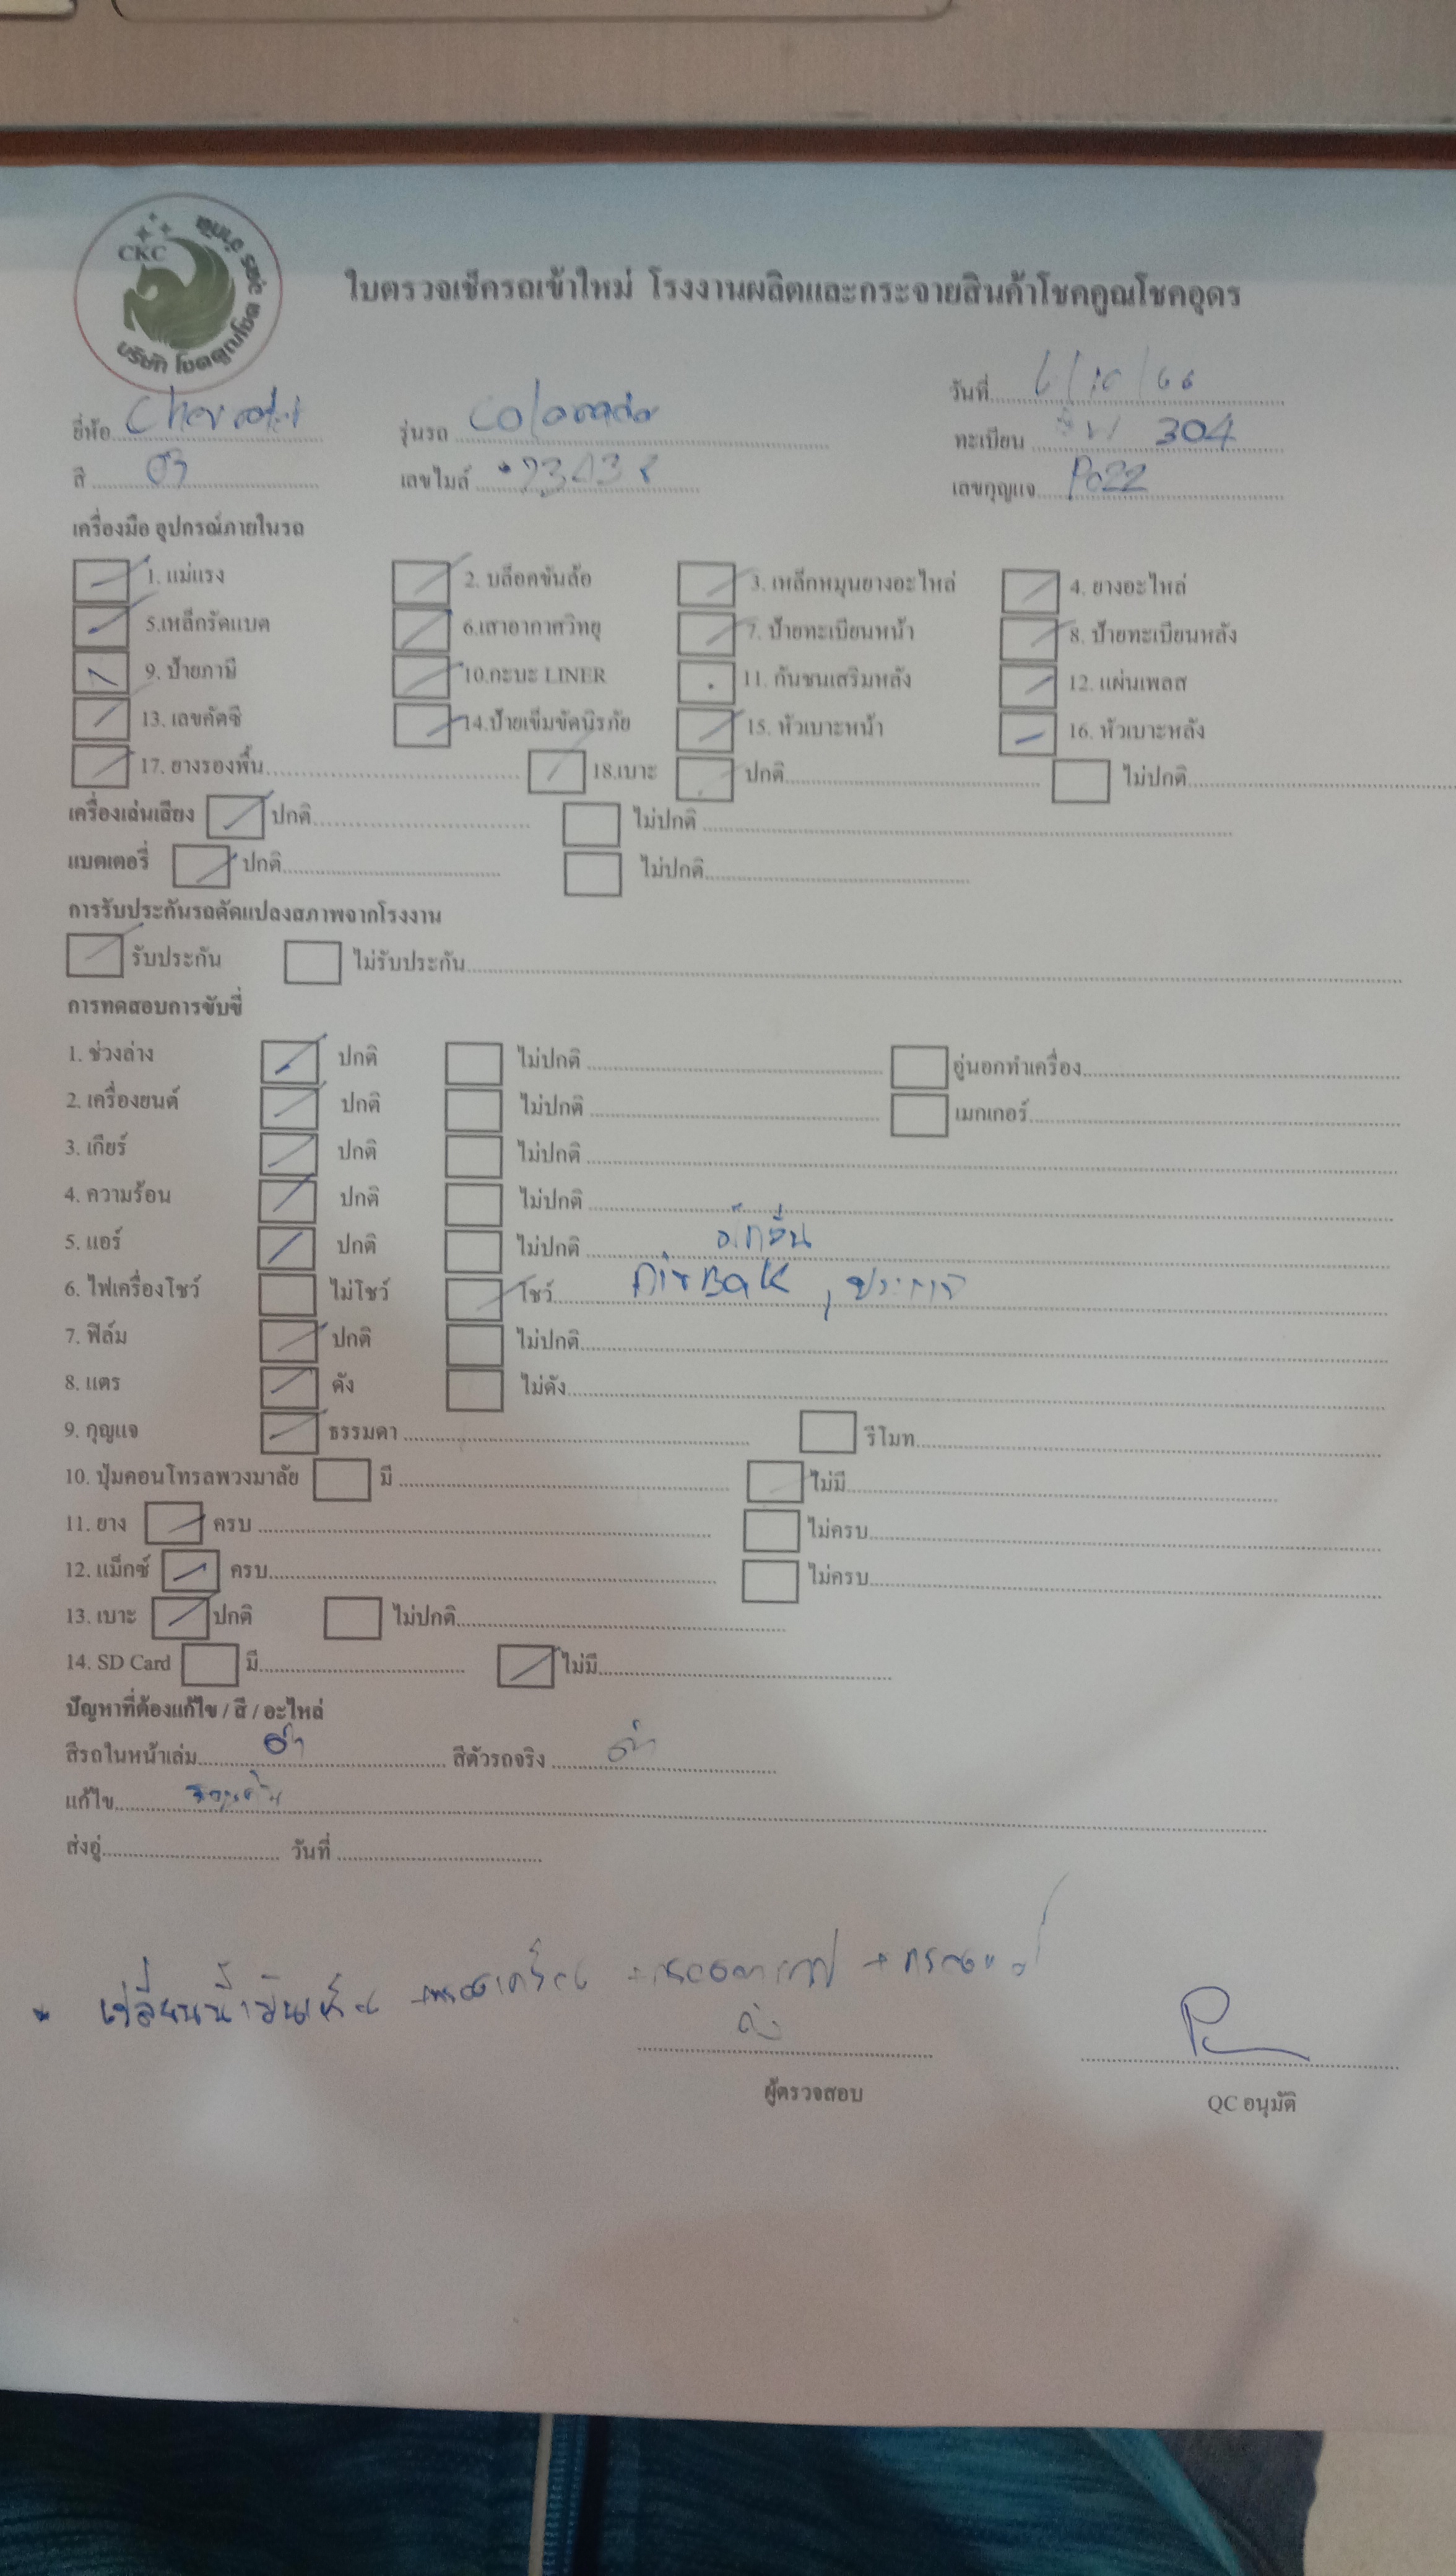 CKC
บริษัท โชคคูณโชค อุดร จำกัด
ใบตรวจเช็ครถเข้าใหม่ โรงงานผลิตและกระจายสินค้าโชคคูณโชคอุดร
วันที่ 6/10/66
ยี่ห้อ Chevrolet รุ่นรถ Colorado ทะเบียน 304
สี ดำ เลขไมล์ เลขกุญแจ P022
เครื่องมือ อุปกรณ์ภายในรถ
1. แม่แรง 2. บล็อคขันล้อ 3. เหล็กหมุนยางอะไหล่ 4. ยางอะไหล่
5.เหล็กรัดแบต 6.เสาอากาศวิทยุ 7. ป้ายทะเบียนหน้า 8. ป้ายทะเบียนหลัง
9. ป้ายภาษี 10.กะบะ LINER 11. กันชนเสริมหลัง 12. แผ่นเพลส
13. เลขคัตซี 14.ป้ายเข็มขัดนิรภัย 15. หัวเบาะหน้า 16. หัวเบาะหลัง
17. ยางรองพื้น 18.เบาะ ปกติ ไม่ปกติ
เครื่องเล่นเสียง ปกติ ไม่ปกติ
แบตเตอรี่ ปกติ ไม่ปกติ
การรับประกันรถดัดแปลงสภาพจากโรงงาน
รับประกัน ไม่รับประกัน
การทดสอบการขับขี่
1. ช่วงล่าง ปกติ ไม่ปกติ อู่นอกทำเครื่อง
2. เครื่องยนต์ ปกติ ไม่ปกติ เมกเกอร์
3. เกียร์ ปกติ ไม่ปกติ
4. ความร้อน ปกติ ไม่ปกติ
5. แอร์ ปกติ ไม่ปกติ
6. ไฟเครื่องโชว์ ไม่โชว์ โชว์ AirBaK,
7. ฟิล์ม ปกติ ไม่ปกติ
8. แตร ดัง ไม่ดัง
9. กุญแจ ธรรมดา รีโมท
10. ปุ่มคอนโทรลพวงมาลัย มี ไม่มี
11. ยาง ครบ ไม่ครบ
12. แม็กซ์ ครบ ไม่ครบ
13. เบาะ ปกติ ไม่ปกติ
14. SD Card มี ไม่มี
ปัญหาที่ต้องแก้ไข / สี / อะไหล่
สีรถในหน้าเล่ม ดำ สีตัวรถจริง ดำ
แก้ไข
ส่งอู่ วันที่
เปลี่ยนน้ำมันเครื่อง
ผู้ตรวจสอบ QC อนุมัติ